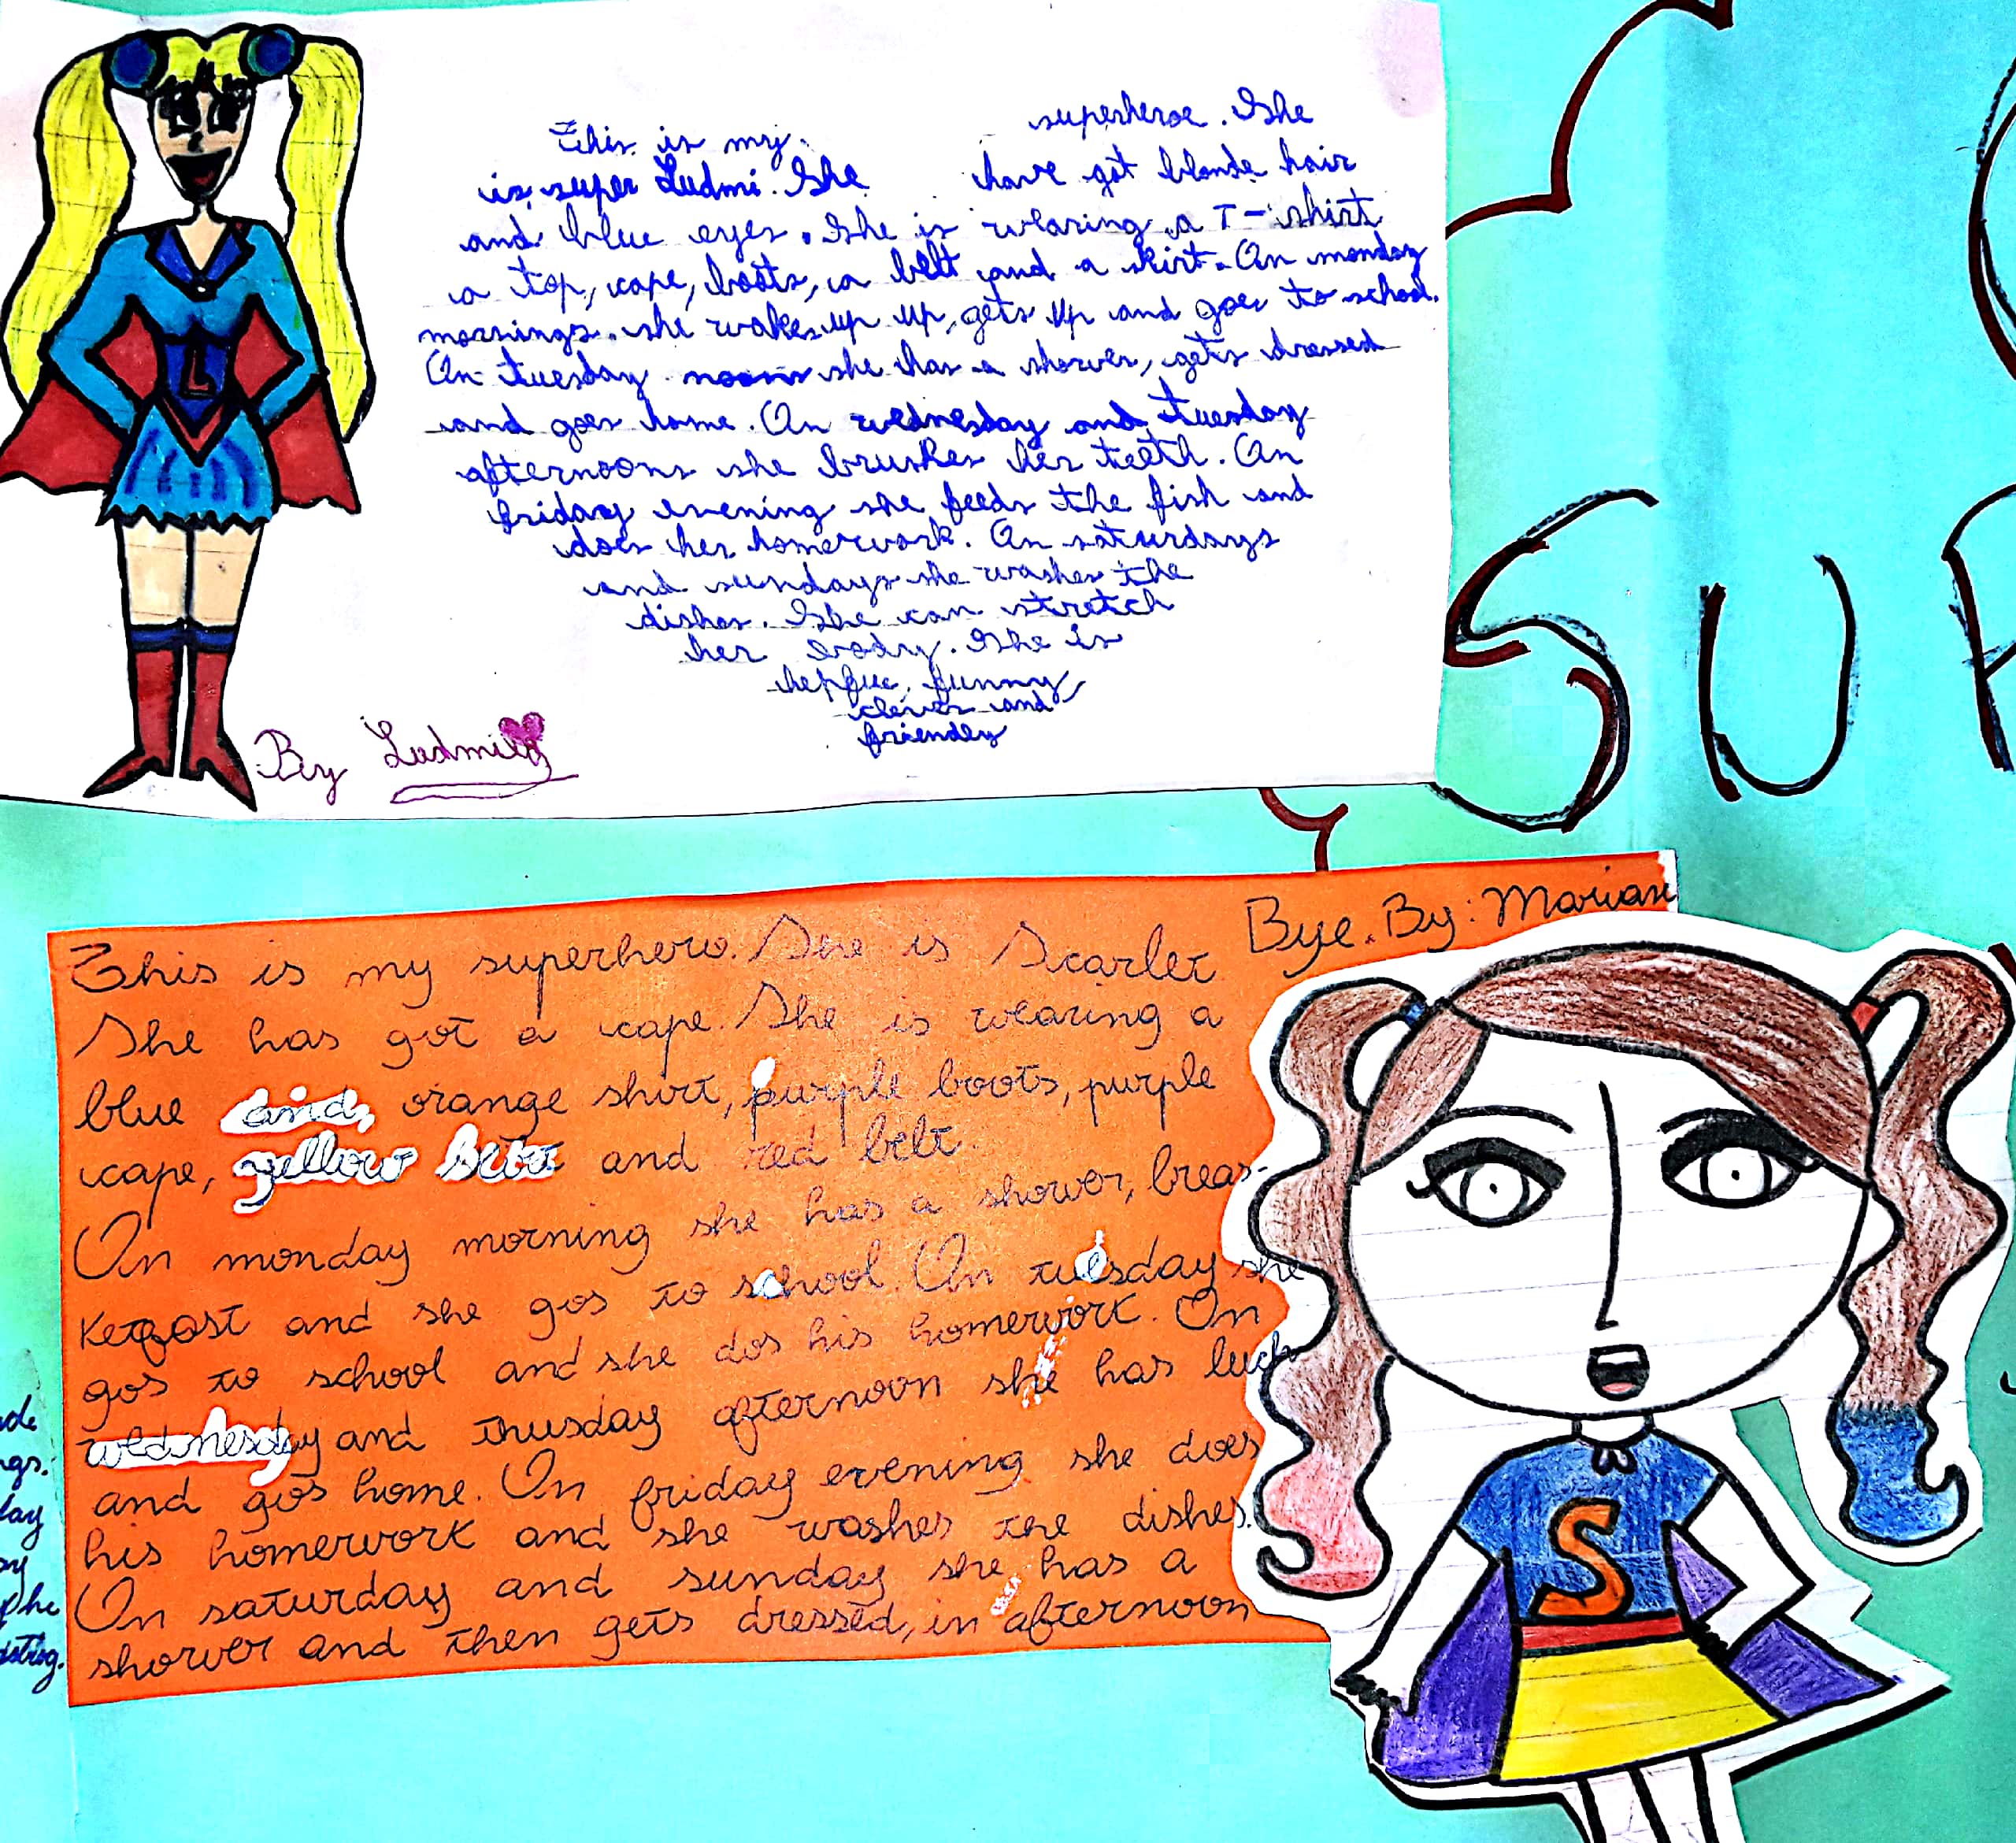 This is my superheroe. She
is super Ludmi. She have got blonde hair
and blue eyes. She is wearing a T-shirt
a top, cape, boots, a belt and a skirt. On monday
mornings she wakes up up, gets up and goes to school.
On tuesday noons she has a shower, gets dressed
and goes home. On wednesday and tuesday
afternoons she brushes her teeth. On
friday evening she feeds the fish and
does her homework. On saturdays
and sundays she washes the
dishes. She can stretch
her body. She is
funny
clever and
friendly
By Ludmila
SUP
This is my superhero. She is Scarlet
She has got a cape. She is wearing a
blue and, orange shirt, purple boots, purple
cape, yellow belt and red belt.
On monday morning she has a shower, breas-
and she gos to school. On tuesday she
gos to school and she dos his homework. On
wednesday and thusday afternoon she has luch
and gos home. On friday evening she does
his homework and she washes the dishes.
On saturday and sunday she has a
shower and then gets dressed, in afternoon
Bye. By: Marian
L
S